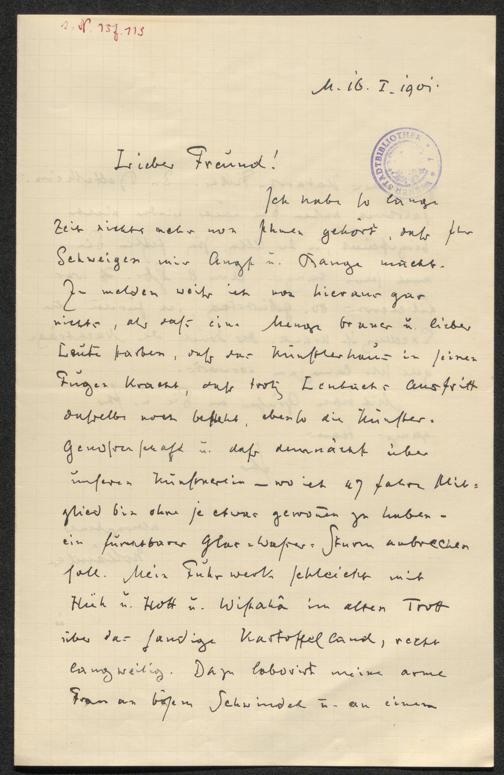 M. 16. I. 1901.
STADTBIBLIOTHEK
Lieber Freund!
Ich habe so lange
Zeit nichts mehr von Ihnen gehört, daß Ihr
Schweigen mir Angst u. Bange macht.
Zu melden weiß ich von hieraus gar
nichts, als daß eine Menge braver u. lieber
Leute starben, daß das Künstlerhaus in seinen
Fugen kracht, daß trotz Lenbachs Austritt
dasselbe noch besteht, ebenso die Künstler-
genossenschaft u. daß demnächst über
unseren Kunstverein – wo ich 47 Jahre Mit-
glied bin ohne je etwas gewonnen zu haben –
ein furchtbarer Glas-Wasser-Sturm anbrechen
soll. Mein Fuhrwerk schleicht mit
Hüh u. Hott u. Wistahâ im alten Trott
über das sandige Kartoffelland, recht
langweilig. Dazu laborirt meine arme
Frau an bösem Schwindel u. an einem